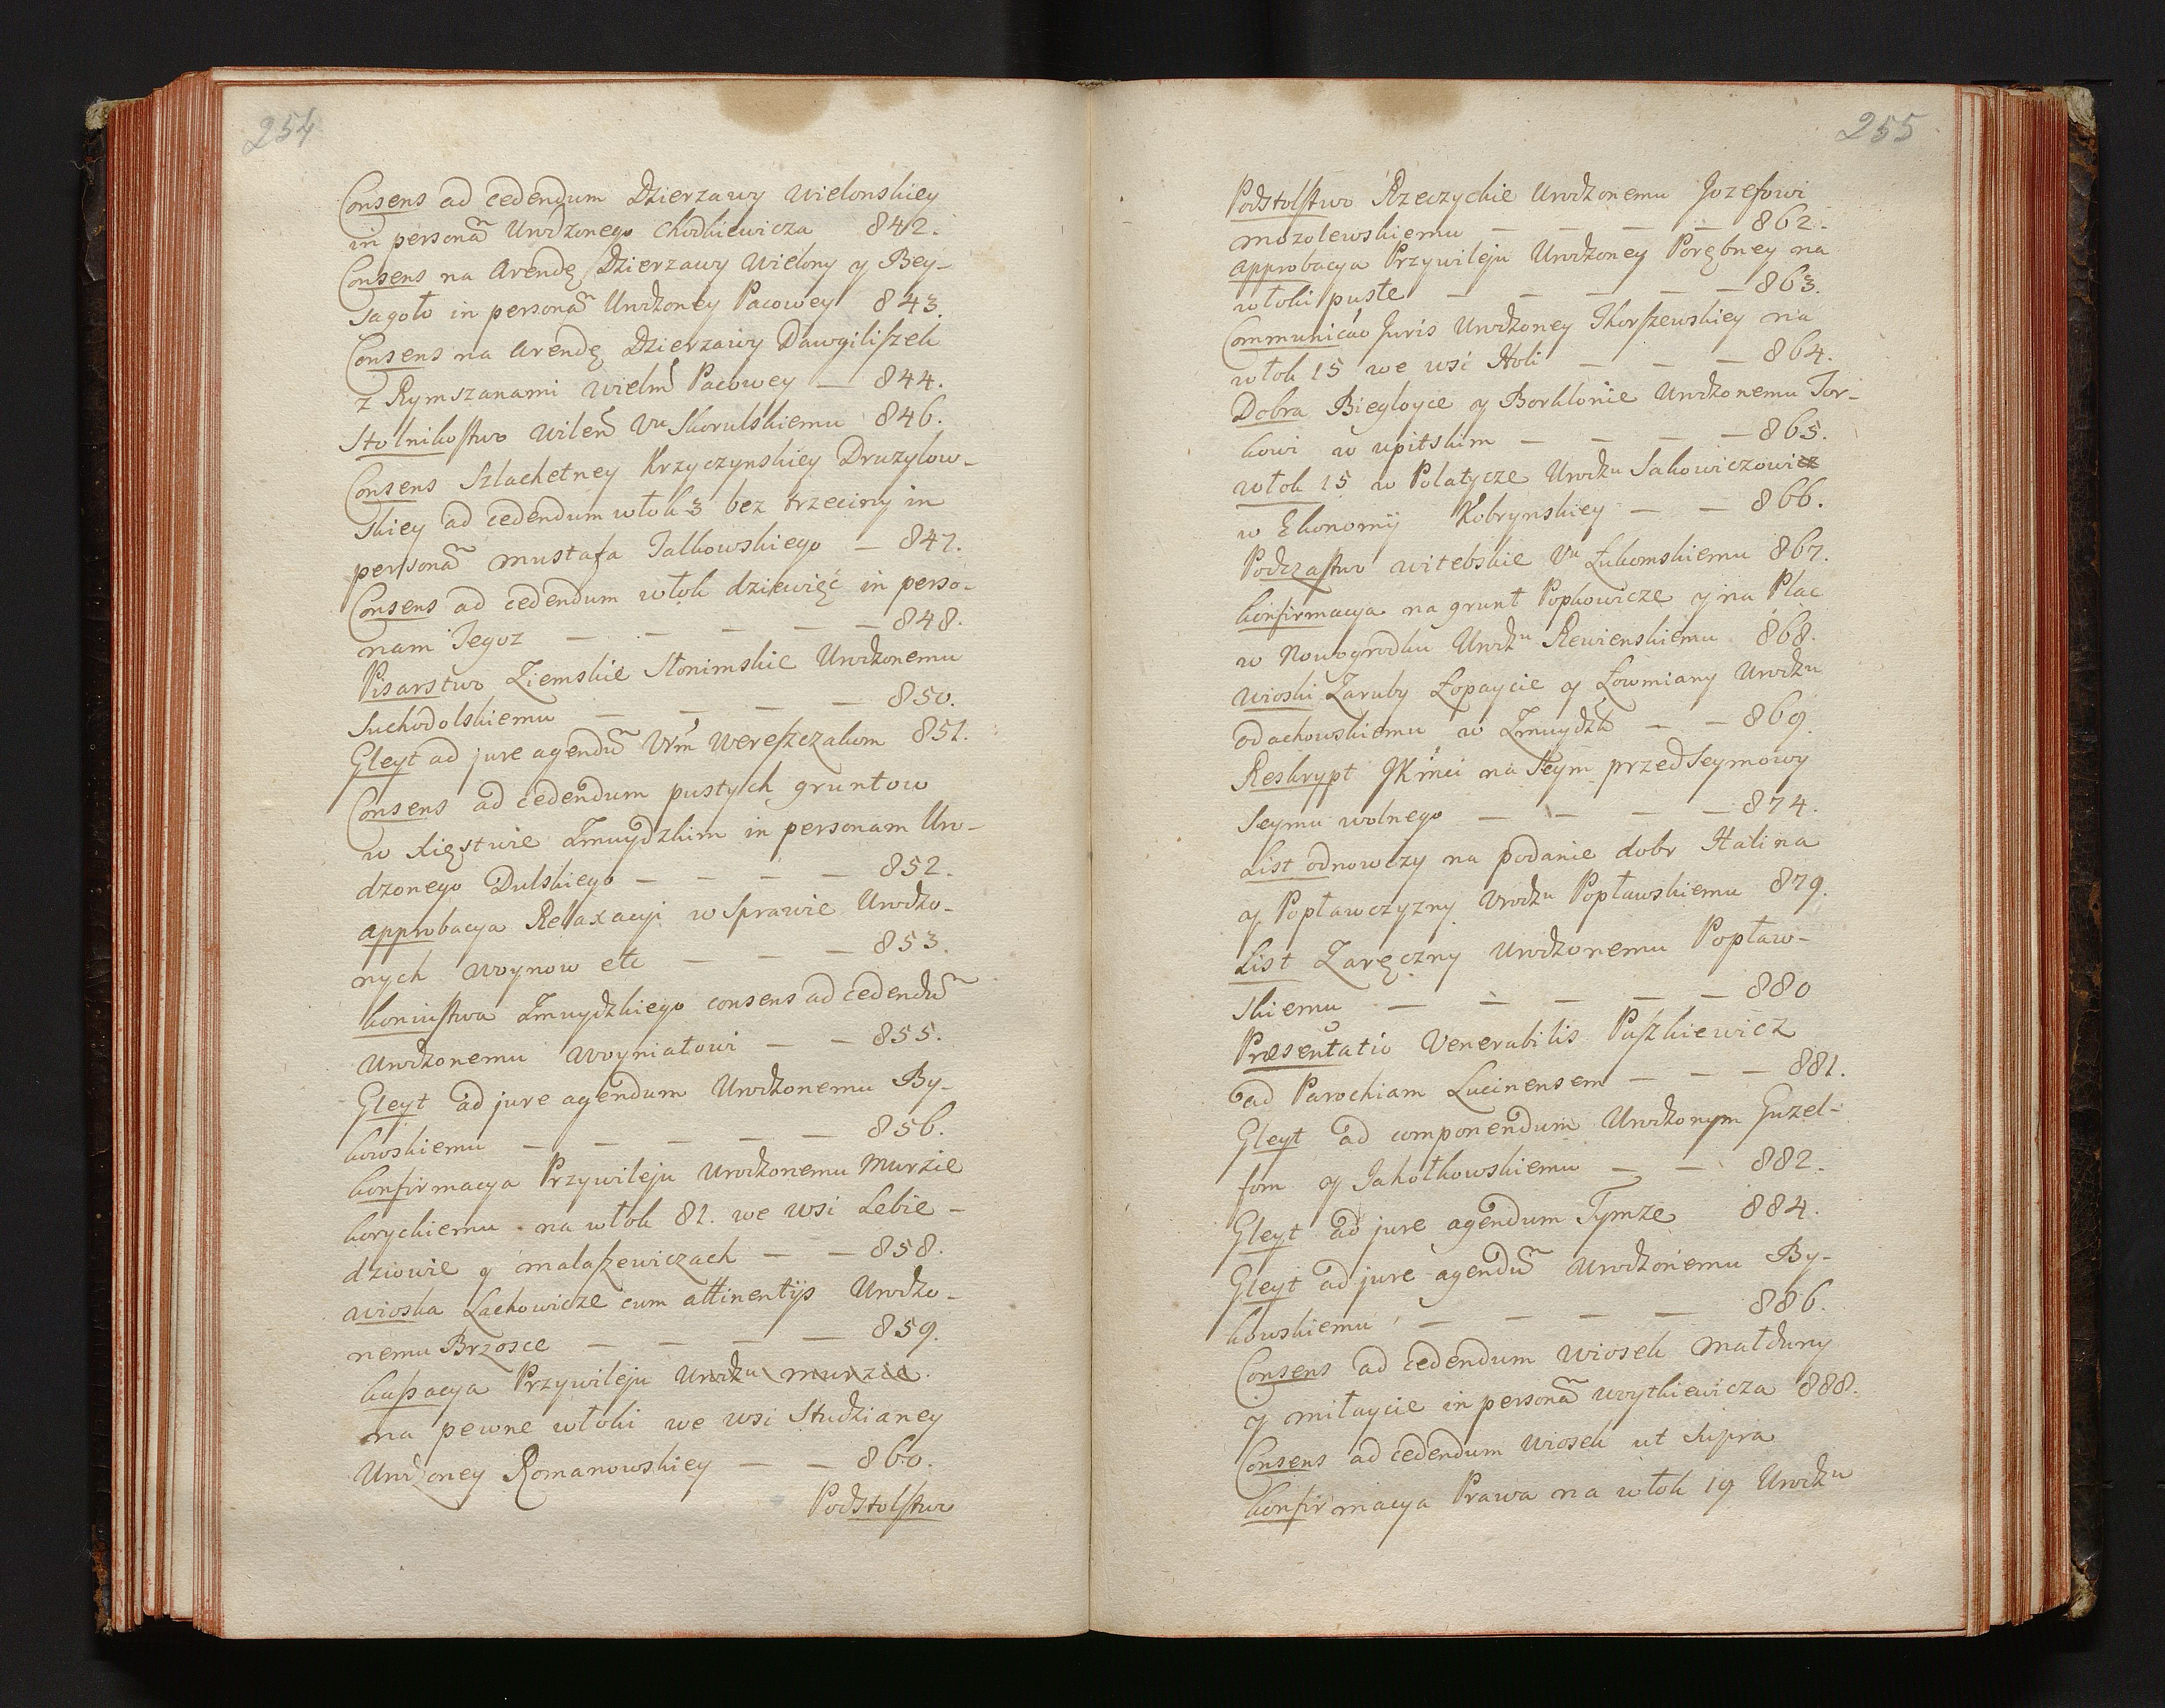 254
Consens ad cedendum Dzierzawy Wielonskiey
in personã Urodzonego Chodkiewicza 842.
Consens na Arendę Dzierzawy Wielony y Bey-
sagoło in personã Urodzoney Pacowey 843.
Consens na Arendę Dzierzawy Dawgiliszek
z Rymszanami Wielm Pacowey — 844.
Stolnikostwo Wileń Uu Skorulskiemu 846.
Consens Szlachetney Krzyczynskiey Druzylow-
skiey ad cedendum włok 3 bez trzeciny in
personã Mustafa Talkowskiego — 847.
Consens ad cedendum włok dziewięć in perso-
nam Tegoz — — — — — 848.
Pisarstwo Ziemskie Słonimskie Urodzonemu
Suchodolskiemu — — — — 850.
Gleyt ad jure agendũ Urm Wereszczakom 851.
Consens ad cedendum pustych gruntow
w Xięstwie Zmuydzkim in personam Uro-
dzonego Dulskiego — — — — 852.
Approbacya Relaxacyi w Sprawie Urodzo-
nych Woynow etc — — — 853.
Koniustwa Zmuydzkiego consens ad cedendũ
Urodzonemu Woyniatowi — — 855.
Gleyt ad jure agendum Urodzonemu By-
kowskiemu — — — — — 856.
Konfirmacya Przywileju Urodzonemu Murzie
Koryckiemu na włok 81. we wsi Lebie-
dziowie y Małaszewiczach — — 858.
Wioska Lachowicze cum attinentijs Urodzo-
nemu Brzosce — — — — 859.
Kassacya Przywileju Urodzu Murzie.
na pewne włoki we wsi Studzianey
Urodzoney Romanowskiey — — 860.
Podstolstwo
255
Podstolstwo Rzeczyckie Urodzonemu Jozefowi
Mozolewskiemu — — — — 862.
Approbacya Przywileju Urodzoney Porębney na
włoki puste — — — — — 863.
Communicao Juris Urodzoney Thorszewskiey na
włok 15 we wsi Holi — — — 864.
Dobra Biegloyce y Borklonie Urodzonemu Tor-
kowi w Upitskim — — — — 865.
Włok 15 w Polatycze Urodzu Sakowiczowi
w Ekonomij Kobrynskiey — — 866.
Podczastwo Witebskie Uu Łukomskiemu 867.
Konfirmacya na grunt Popkowicze y na Plac
w Nowogrodku Urodzu Rewienskiemu 868.
Wioski Zaruby Łopaycie y Łowmiany Urodzu
Odachowskiemu w Zmuydzi — — 869.
Reskrypt JKmci na Seym przedseymowy
Seymu wolnego — — — — 874.
List odnowczy na podanie dobr Halina
y Popławczyzny Urodzu Popławskiemu 879.
List Zaręczny Urodzonemu Popław-
skiemu — — — — — 880
Præsentatio Venerabilis Paszkiewicz
ad Parochiam Lucinensem — — — 881.
Gleyt ad componendum Urodzonym Guzel-
fom y Jakołkowskiemu — — 882.
Gleyt ad jure agendum Tymze 884.
Gleyt ad jure agendũ Urodzonemu By-
kowskiemu — — — — 886.
Consens ad cedendum Wiosek Małduny
y Miłaycie in personã Woytkiewicza 888.
Consens ad cedendum Wiosek ut Supra
Konfirmacya Prawa na włok 19 Urodzu